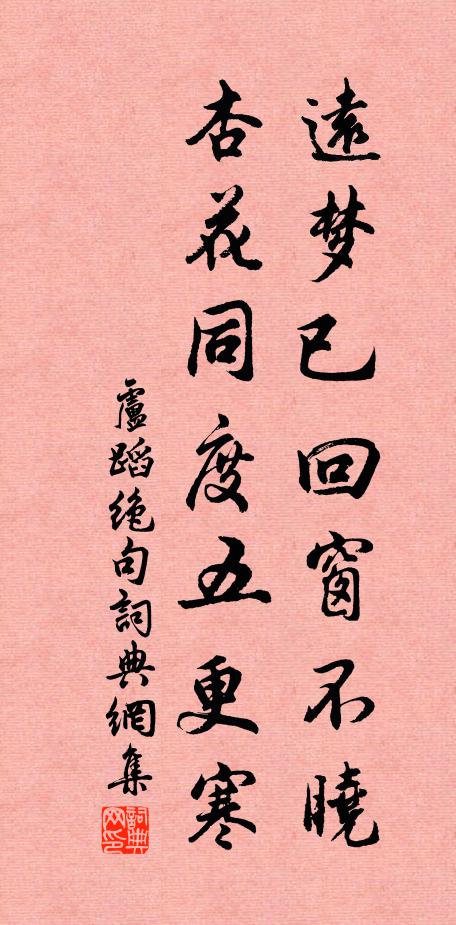 遠梦已回窗不曉
杏花同度五更寒
盧蹈絶句詞典網集
詞典网印